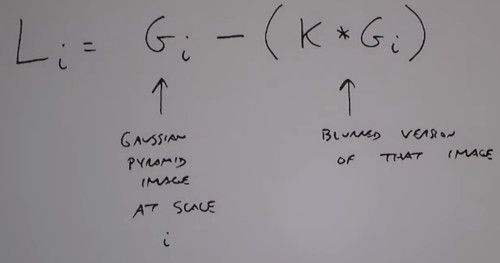 L_i = G_i - (K * G_i)
GAUSSIAN
PYRAMID
IMAGE
AT SCALE
i
BLURRED VERSION
OF THAT IMAGE